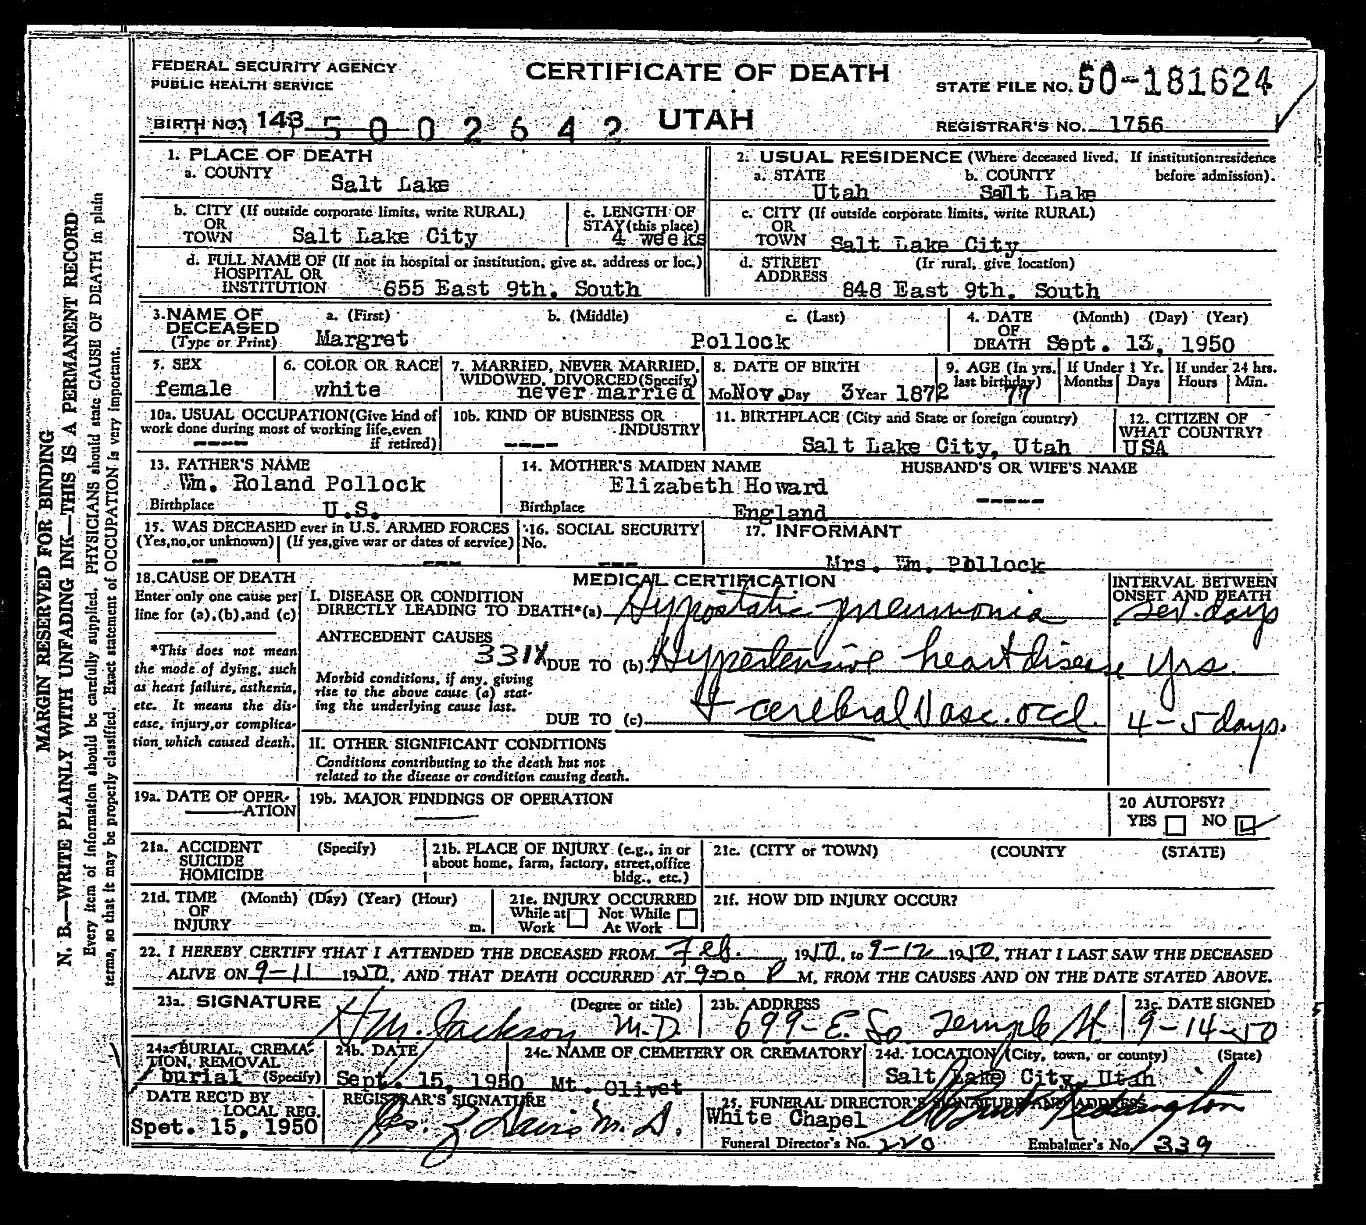 FEDERAL SECURITY AGENCY
PUBLIC HEALTH SERVICE
CERTIFICATE OF DEATH
UTAH
STATE FILE NO. 50-181624
REGISTRAR'S NO. 1756
BIRTH NO. 143 5002642
1. PLACE OF DEATH
a. COUNTY Salt Lake
b. CITY (If outside corporate limits, write RURAL) OR TOWN Salt Lake City
c. LENGTH OF STAY (this place) 4 weeks
d. FULL NAME OF (If not in hospital or institution, give st. address or loc.) HOSPITAL OR INSTITUTION 655 East 9th. South
2. USUAL RESIDENCE (Where deceased lived. If institution:residence before admission).
a. STATE Utah b. COUNTY Salt Lake
c. CITY (If outside corporate limits, write RURAL) OR TOWN Salt Lake City
d. STREET ADDRESS (If rural, give location) 848 East 9th. South
3. NAME OF DECEASED (Type or Print) a. (First) Margret b. (Middle) c. (Last) Pollock
4. DATE OF DEATH (Month) (Day) (Year) Sept. 13, 1950
5. SEX female
6. COLOR OR RACE white
7. MARRIED, NEVER MARRIED, WIDOWED, DIVORCED (Specify) never married
8. DATE OF BIRTH Mo Nov. Day 3 Year 1872
9. AGE (In yrs. last birthday) 77 If Under 1 Yr. Months Days If under 24 hrs. Hours Min.
10a. USUAL OCCUPATION (Give kind of work done during most of working life, even if retired) ----
10b. KIND OF BUSINESS OR INDUSTRY ----
11. BIRTHPLACE (City and State or foreign country) Salt Lake City, Utah
12. CITIZEN OF WHAT COUNTRY? USA
13. FATHER'S NAME Wm. Roland Pollock
Birthplace U.S.
14. MOTHER'S MAIDEN NAME Elizabeth Howard
Birthplace England
HUSBAND'S OR WIFE'S NAME -----
15. WAS DECEASED ever in U.S. ARMED FORCES (Yes, no, or unknown) -- (If yes, give war or dates of service) ---
16. SOCIAL SECURITY No. ---
17. INFORMANT Mrs. Wm. Pollock
18. CAUSE OF DEATH
Enter only one cause per line for (a), (b), and (c)
*This does not mean the mode of dying, such as heart failure, asthenia, etc. It means the disease, injury, or complication which caused death.
MEDICAL CERTIFICATION
INTERVAL BETWEEN ONSET AND DEATH
I. DISEASE OR CONDITION DIRECTLY LEADING TO DEATH* (a) Hypostatic pneumonia sev. days
ANTECEDENT CAUSES 331X
Morbid conditions, if any, giving rise to the above cause (a) stating the underlying cause last.
DUE TO (b) Hypertensive heart disease yrs.
DUE TO (c) & cerebral Vasc. occl. 4-5 days.
II. OTHER SIGNIFICANT CONDITIONS
Conditions contributing to the death but not related to the disease or condition causing death.
19a. DATE OF OPERATION
19b. MAJOR FINDINGS OF OPERATION
20 AUTOPSY? YES NO
21a. ACCIDENT SUICIDE HOMICIDE (Specify)
21b. PLACE OF INJURY (e.g., in or about home, farm, factory, street, office bldg., etc.)
21c. (CITY or TOWN) (COUNTY (STATE)
21d. TIME OF INJURY (Month) (Day) (Year) (Hour) m.
21e. INJURY OCCURRED While at Work Not While At Work
21f. HOW DID INJURY OCCUR?
22. I HEREBY CERTIFY THAT I ATTENDED THE DECEASED FROM Feb. 1950, to 9-12 1950, THAT I LAST SAW THE DECEASED
ALIVE ON 9-11 1950, AND THAT DEATH OCCURRED AT 9:00 P M, FROM THE CAUSES AND ON THE DATE STATED ABOVE.
23a. SIGNATURE (Degree or title) H M. Jackson M.D.
23b. ADDRESS 699-E. So Temple St.
23c. DATE SIGNED 9-14-50
24a. BURIAL, CREMATION, REMOVAL (Specify) burial
24b. DATE Sept. 15, 1950
24c. NAME OF CEMETERY OR CREMATORY Mt. Olivet
24d. LOCATION (City, town, or county) (State) Salt Lake City, Utah
DATE REC'D BY LOCAL REG. Spet. 15, 1950
REGISTRAR'S SIGNATURE Davis M. D.
25. FUNERAL DIRECTOR'S SIGNATURE AND ADDRESS White Chapel
Funeral Director's No. 220 Embalmer's No. 339
MARGIN RESERVED FOR BINDING
N. B.—WRITE PLAINLY WITH UNFADING INK—THIS IS A PERMANENT RECORD
Every item of information should be carefully supplied. PHYSICIANS should state CAUSE OF DEATH in plain
terms, so that it may be properly classified. Exact statement of OCCUPATION is very important.